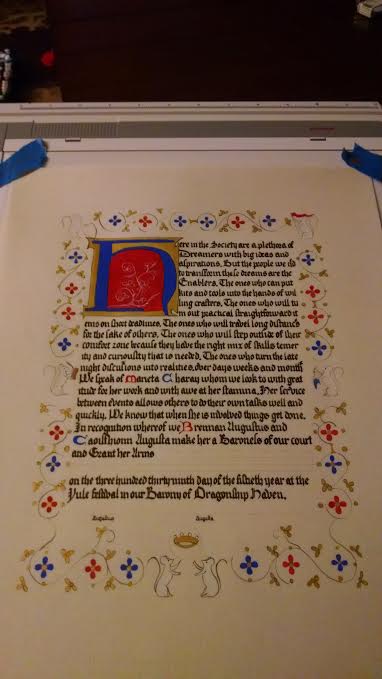 Here in the Society are a plethora of
Dreamers with big ideas and
aspirations. But the people we need
to transform these dreams are the
Enablers. The ones who can put
kits and tools into the hands of wil
ling crafters. The ones who will tu
rn out practical straightforward it
ems on short deadlines. The ones who will travel long distances
for the sake of others. The ones who will step outside of their
comfort zone because they have the right mix of skills temer
ity and curiousity that is needed. The ones who turn the late
night discussions into realities, over days and months
We speak of Mancta Charay whom we look to with grat
itude for her work and with awe at her stamina. Her service
between events allows others to do their own tasks well and
quickly. We know that when she is involved things get done.
In recognition whereof we Brennan Augustus and
Caoilfhionn Augusta make her a Baroness of our court
and Grant her Arms
on the three hundred thirty ninth day of the fiftieth year at the
Yule festival in our Barony of Dragonship Haven.
Augustus Augusta